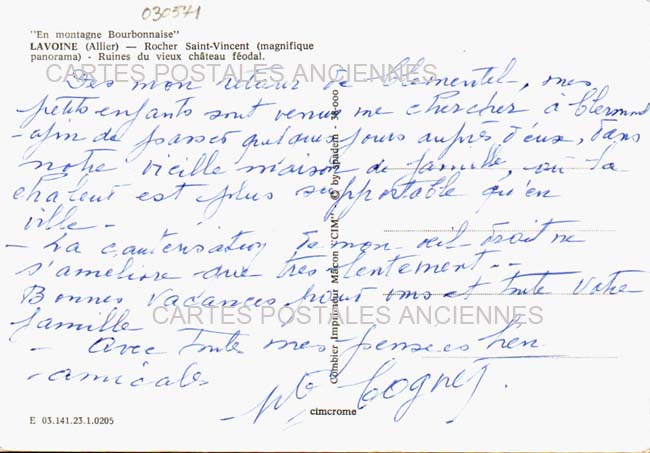 030571
"En montagne Bourbonnaise"
LAVOINE (Allier) — Rocher Saint-Vincent (magnifique
panorama) - Ruines du vieux château féodal.
CARTES POSTALES ANCIENNES
Dès mon retour de Clémentel, mes
petits enfants sont venus me chercher à Clermont
- afin de passer quelques jours auprès d'eux, dans
notre vieille maison de famille, où la
chaleur est plus supportable qu'en
ville -
- La cautérisation de mon oeil droit ne
s'améliore que très lentement -
Bonnes Vacances pour vous et toute votre
famille
CARTES POSTALES ANCIENNES
- Avec toute mes pensées bien
- amicales
Cognet.
Combier Imprimeur Mâcon "CIM"
© by spadem - 38-000
cimcrome
E 03.141.23.1.0205